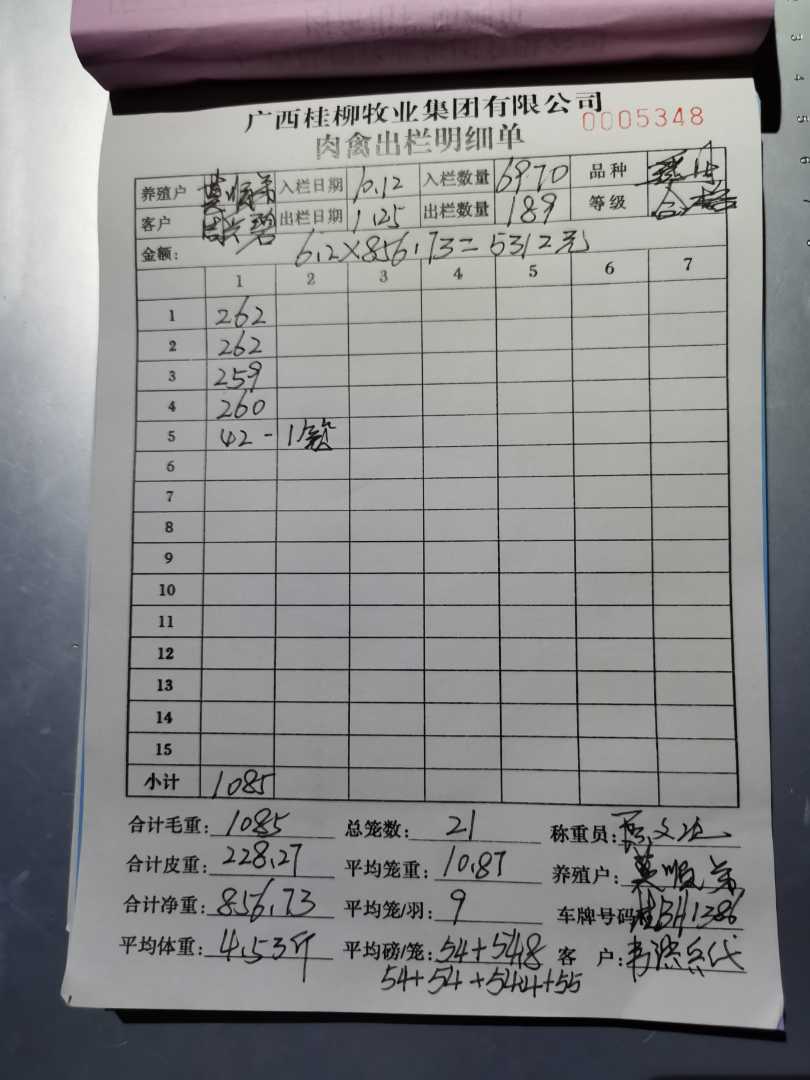 广西桂柳牧业集团有限公司
0005348
肉禽出栏明细单
养殖户 入栏日期 10.12 入栏数量 6970 品种
客户 出栏日期 1.25 出栏数量 189 等级
金额: 6.2×856.73=5312元
1 2 3 4 5 6 7
1 262
2 262
3 259
4 260
5 42-1笼
6
7
8
9
10
11
12
13
14
15
小计 1085
合计毛重: 1085 总笼数: 21 称重员:
合计皮重: 228.27 平均笼重: 10.87 养殖户:
合计净重: 856.73 平均笼/羽: 9 车牌号码 桂BH1386
平均体重: 4.53斤 平均磅/笼: 54+54.8 客 户:
54+54+54.4+55